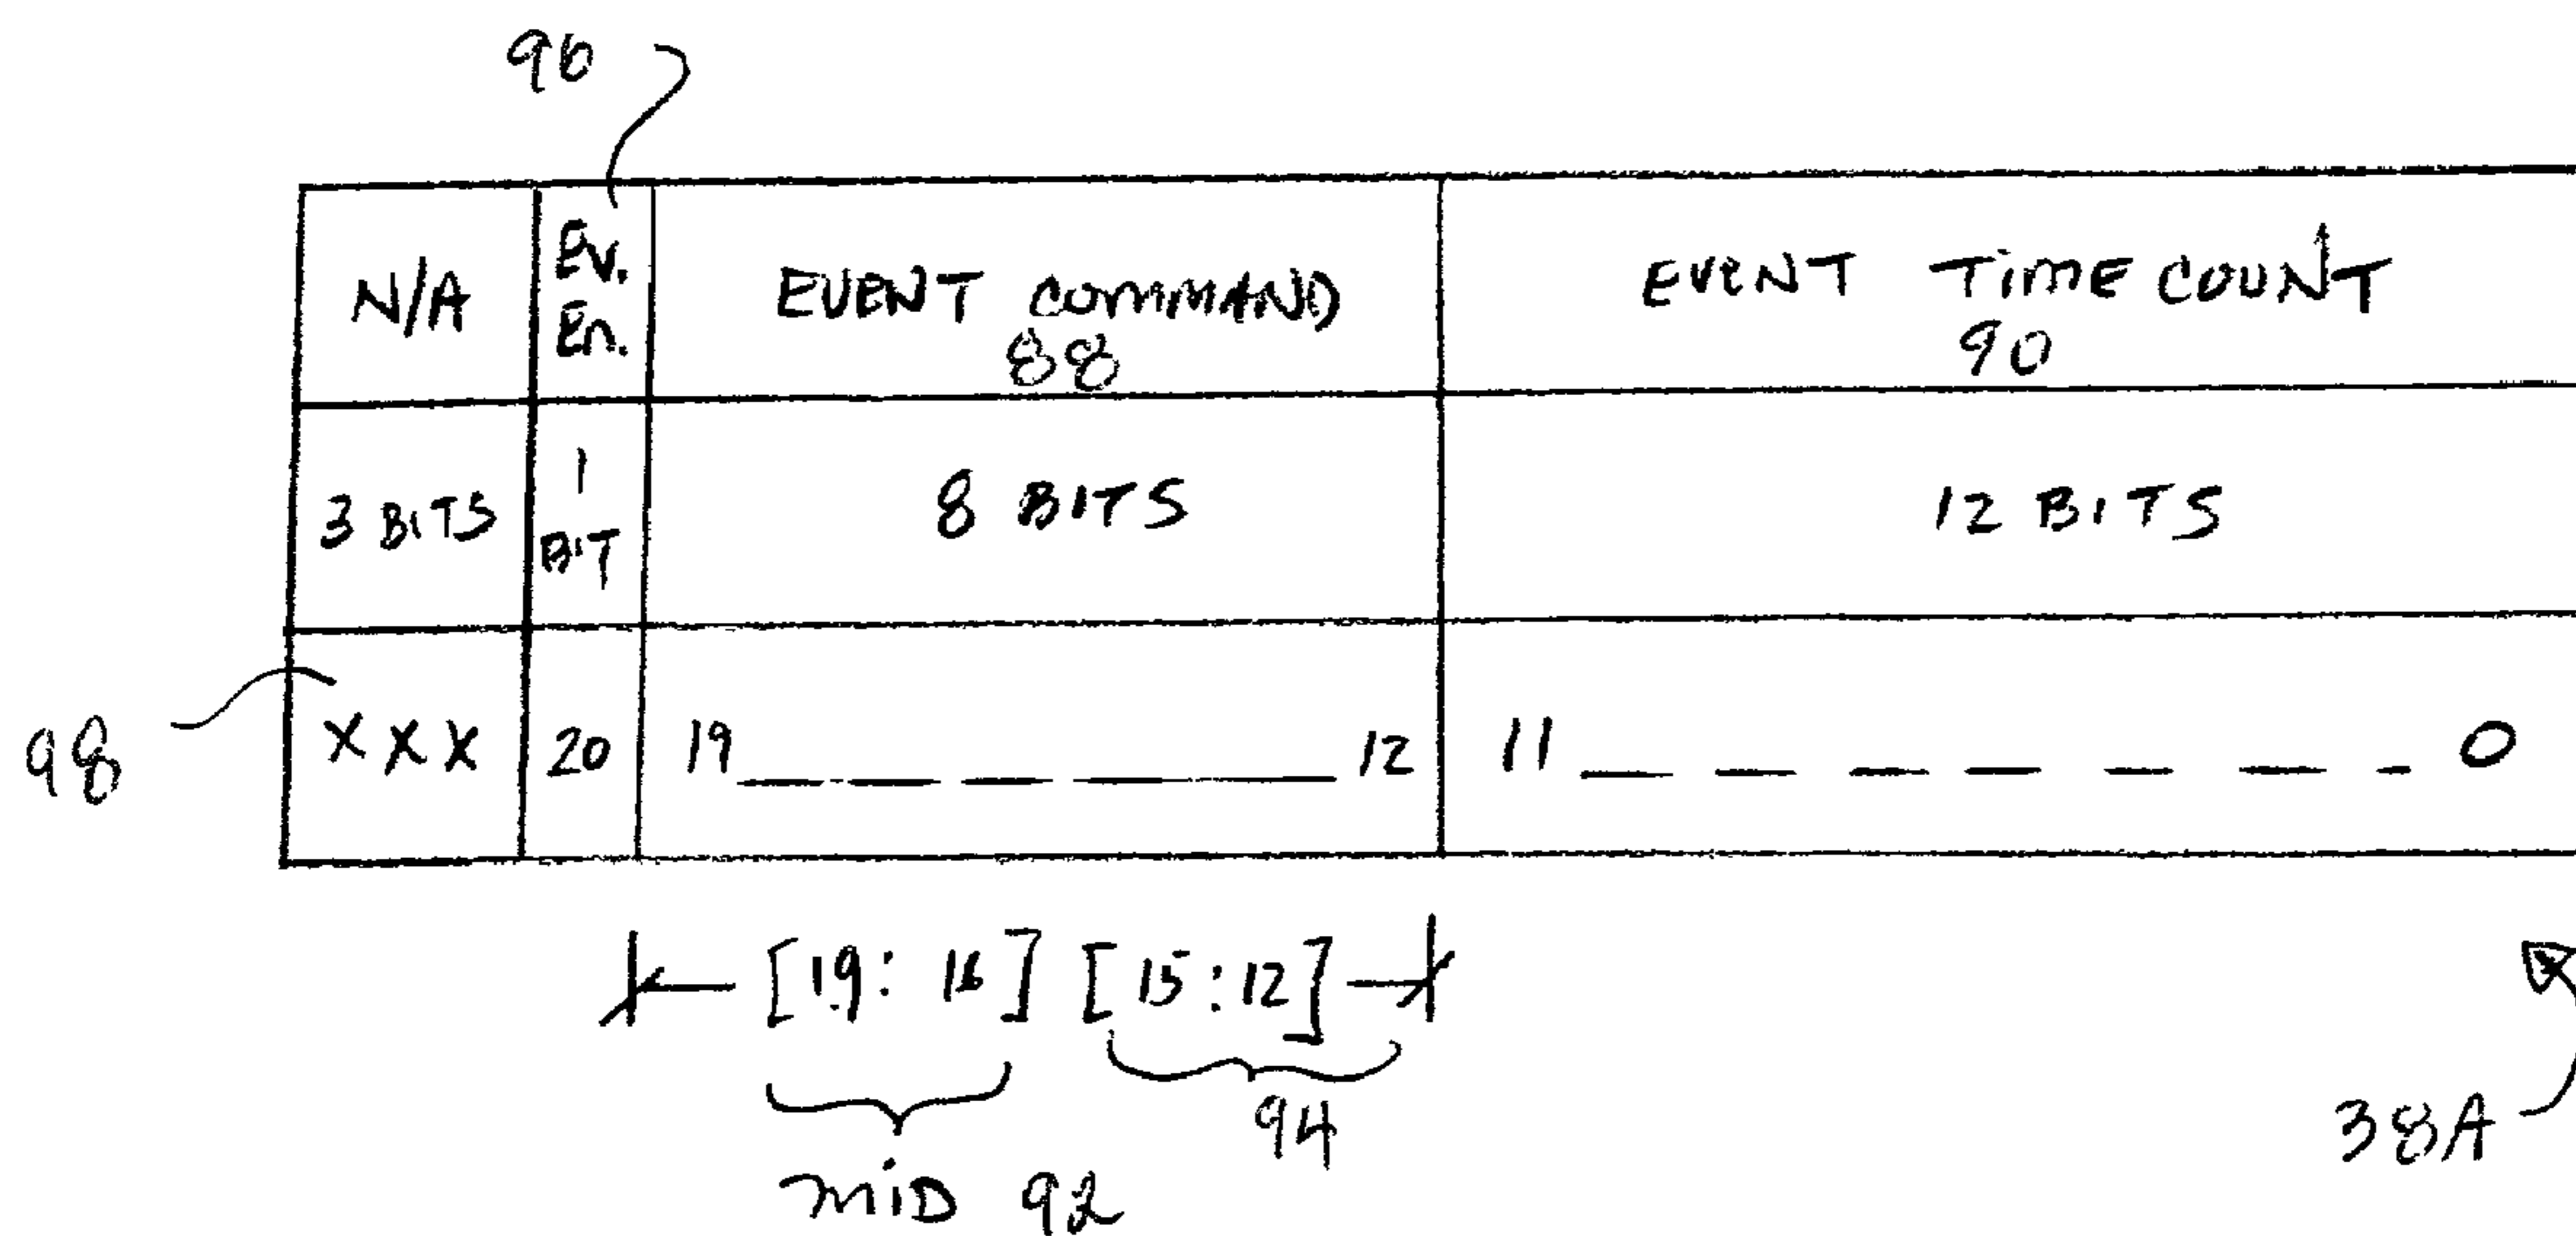 96
N/A
Ev.
En.
EVENT COMMAND
88
EVENT TIME COUNT
90
3 BITS
1
BIT
8 BITS
12 BITS
98
X X X
20
19 12
11 0
[19: 16] [15:12]
94
MID 92
38A